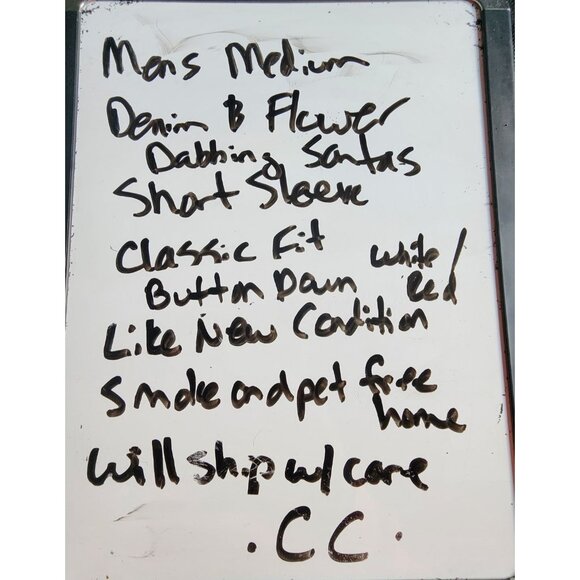 Mens Medium
Denim & Flower
Dabbing Santas
Short Sleeve
Classic Fit
Button Down White/
Red
Like New Condition
Smoke and pet free
home
Will ship w/ care
. C C .